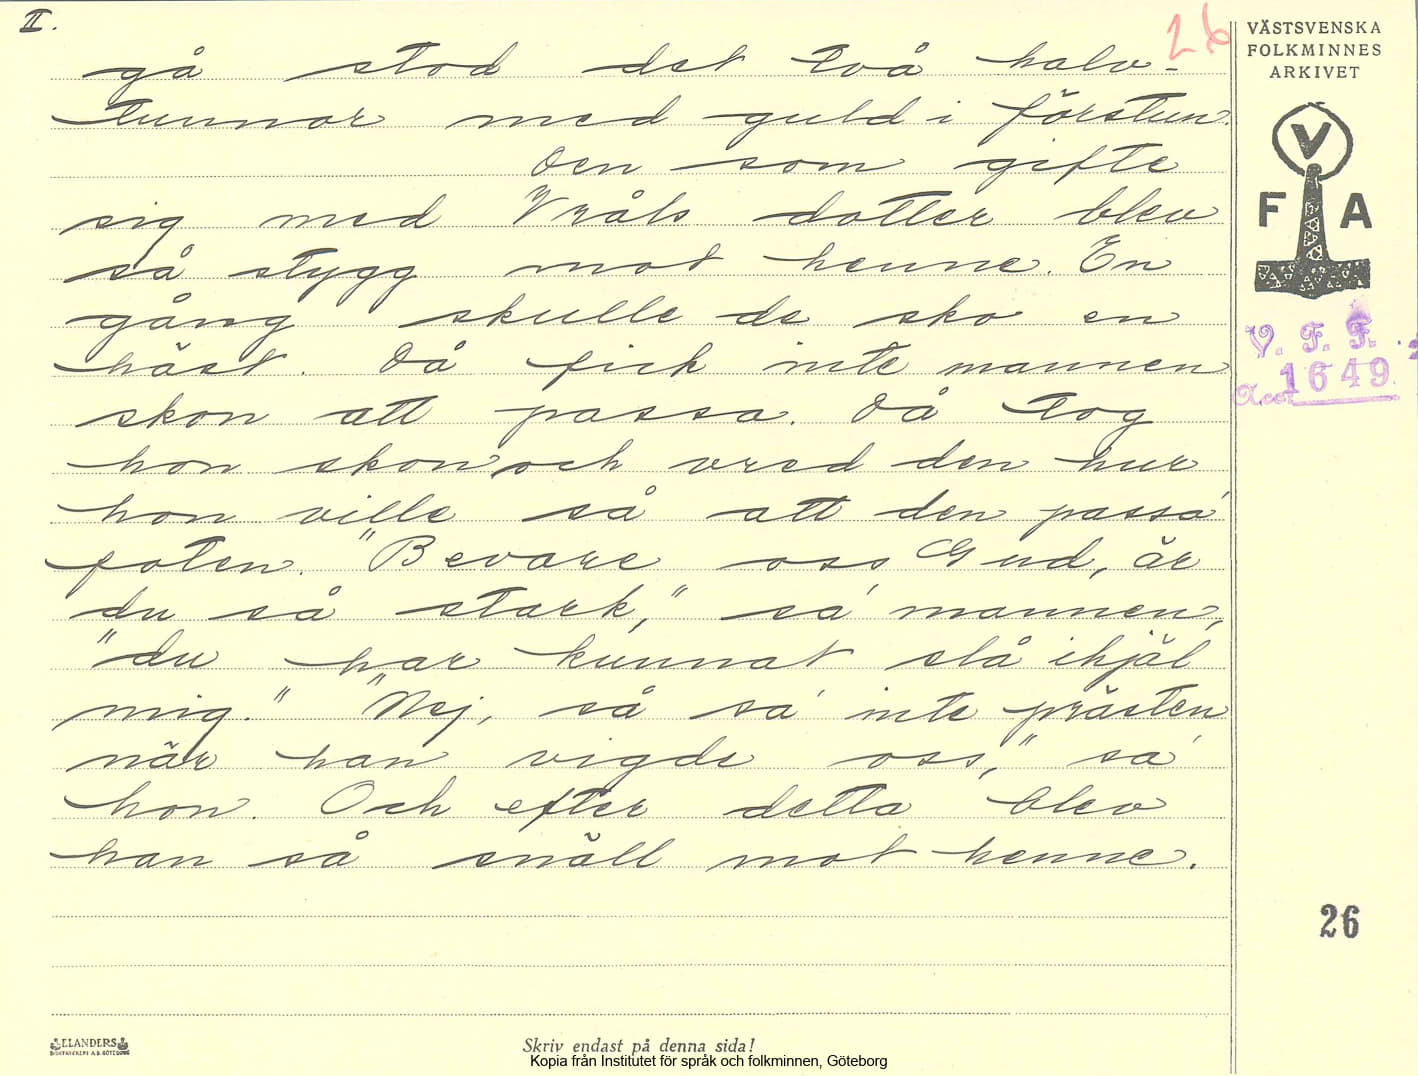 II.
26
gå stod det två halv-
tunnor med guld i förstun.
Den som gifte
sig med Vråls dotter blev
så stygg mot henne. En
gång skulle de sko en
häst. Då fick inte mannen
skon att passa. Då tog
hon skon och vred den hur
hon ville så att den passa'
foten. "Bevare oss Gud, är
du så stark," sa' mannen,
"du har kunnat slå ihjäl
mig." "Nej, så sa' inte prästen
när han vigde oss," sa'
hon. Och efter detta blev
han så snäll mot henne.
VÄSTSVENSKA
FOLKMINNES
ARKIVET
V
F A
V. F. F.
Acc. 1649
26
ELANDERS
BOKTRYCKERI A.B. GÖTEBORG
Skriv endast på denna sida!
Kopia från Institutet för språk och folkminnen, Göteborg